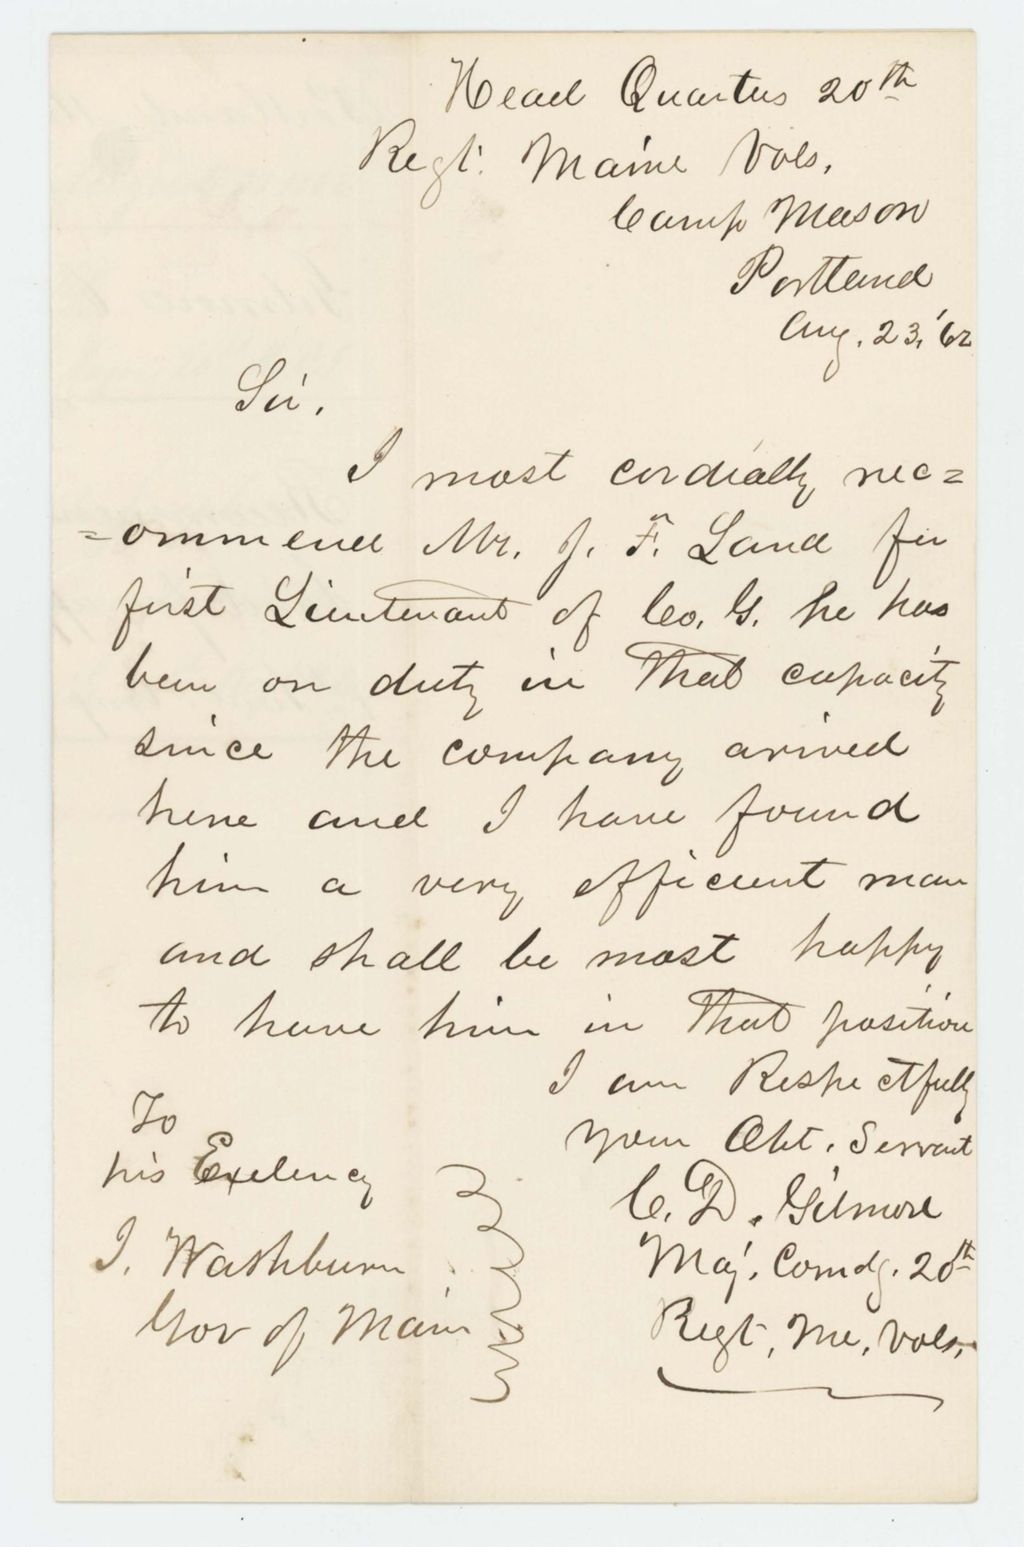 Head Quarters 20th
Regt. Maine Vols.
Camp Mason
Portland
Aug. 23, '62
Sir,
I most cordially rec=
=ommend Mr. J. F. Land for
first Lieutenant of Co. G. he has
been on duty in that capacity
since the company arived
here and I have found
him a very efficient man
and shall be most happy
to have him in that position
I am Respectfully
your Obt. Servant
C. D. Gilmore
Maj. Comdg. 20th
Regt, Me, Vols,
To
his Exelency
I. Washburn
Gov of Main